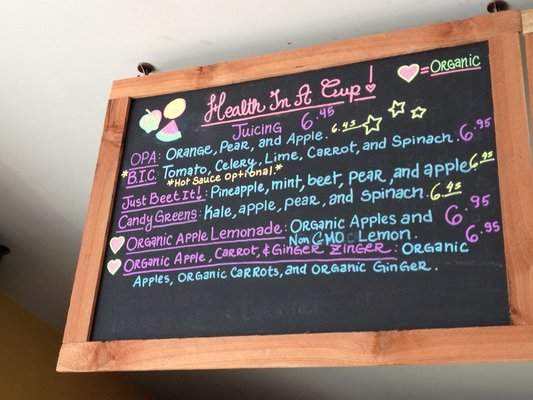 Health In A Cup!
= ORGANIC
Juicing 6.45
OPA: Orange, Pear, and Apple. 6.45
*B.I.C: Tomato, Celery, Lime, Carrot, and Spinach. 6.95
*Hot Sauce Optional*
Just Beet It!: Pineapple, mint, beet, pear, and apple 6.95
Candy Greens: Kale, apple, pear, and spinach. 6.45
Organic Apple Lemonade: Organic Apples and 6.95
Non GMO Lemon.
Organic Apple, Carrot, & Ginger Zinger: Organic 6.95
Apples, Organic Carrots, and Organic Ginger.